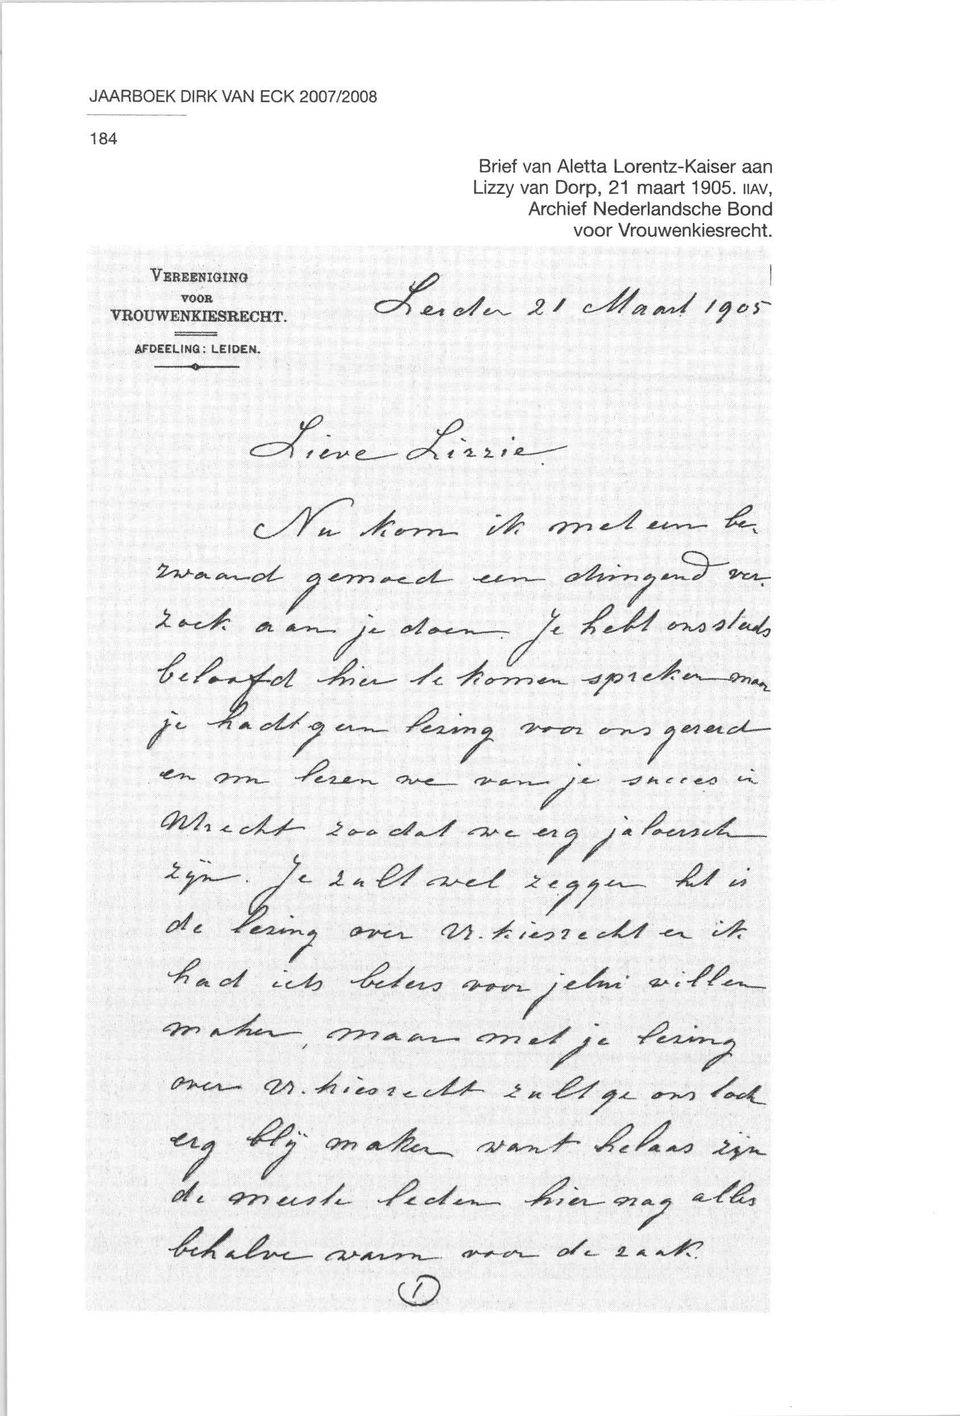 JAARBOEK DIRK VAN ECK 2007/2008
184
Brief van Aletta Lorentz-Kaiser aan
Lizzy van Dorp, 21 maart 1905. IIAV,
Archief Nederlandsche Bond
voor Vrouwenkiesrecht.
VEREENIGING
VOOR
VROUWENKIESRECHT.
AFDEELING: LEIDEN.
Leiden 21 Maart 1905
Lieve Lizzie
Nu kom ik met een be-
zwaard gemoed een dringend ver-
zoek aan je doen. Je hebt ons steeds
beloofd hier te komen spreken maar
je hadt geen lezing voor ons gereed
en nu lezen we van je succes in
Utrecht zoodat we erg jaloersch
zijn. Je zult wel zeggen het is
de lezing over Vr. kiesrecht en ik
had iets beters voor jelui willen
maken, maar met je lezing
over Vr. kiesrecht zult ge ons toch
erg blij maken want helaas zijn
de meeste leden hier nog alles
behalve warm voor de zaak.
1